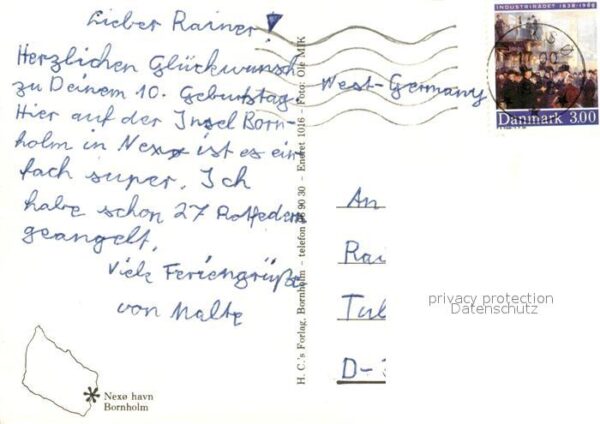 Lieber Rainer!
Herzlichen Glückwunsch
zu Deinem 10. Geburtstag.
Hier auf der Insel Born-
holm in Nexø ist es ein
fach super. Ich
habe schon 27 Rotfedern
geangelt.
Viele Feriengrüße
von Malte
Nexø havn
Bornholm
H. C.'s Forlag, Bornholm - telefon 96 90 30 - Eneret 1016 - Foto: Ole MIK
West-Germany
INDUSTRIRÅDET 1838-1988
Danmark 3.00
An
Rai
Tul
D-
privacy protection
Datenschutz